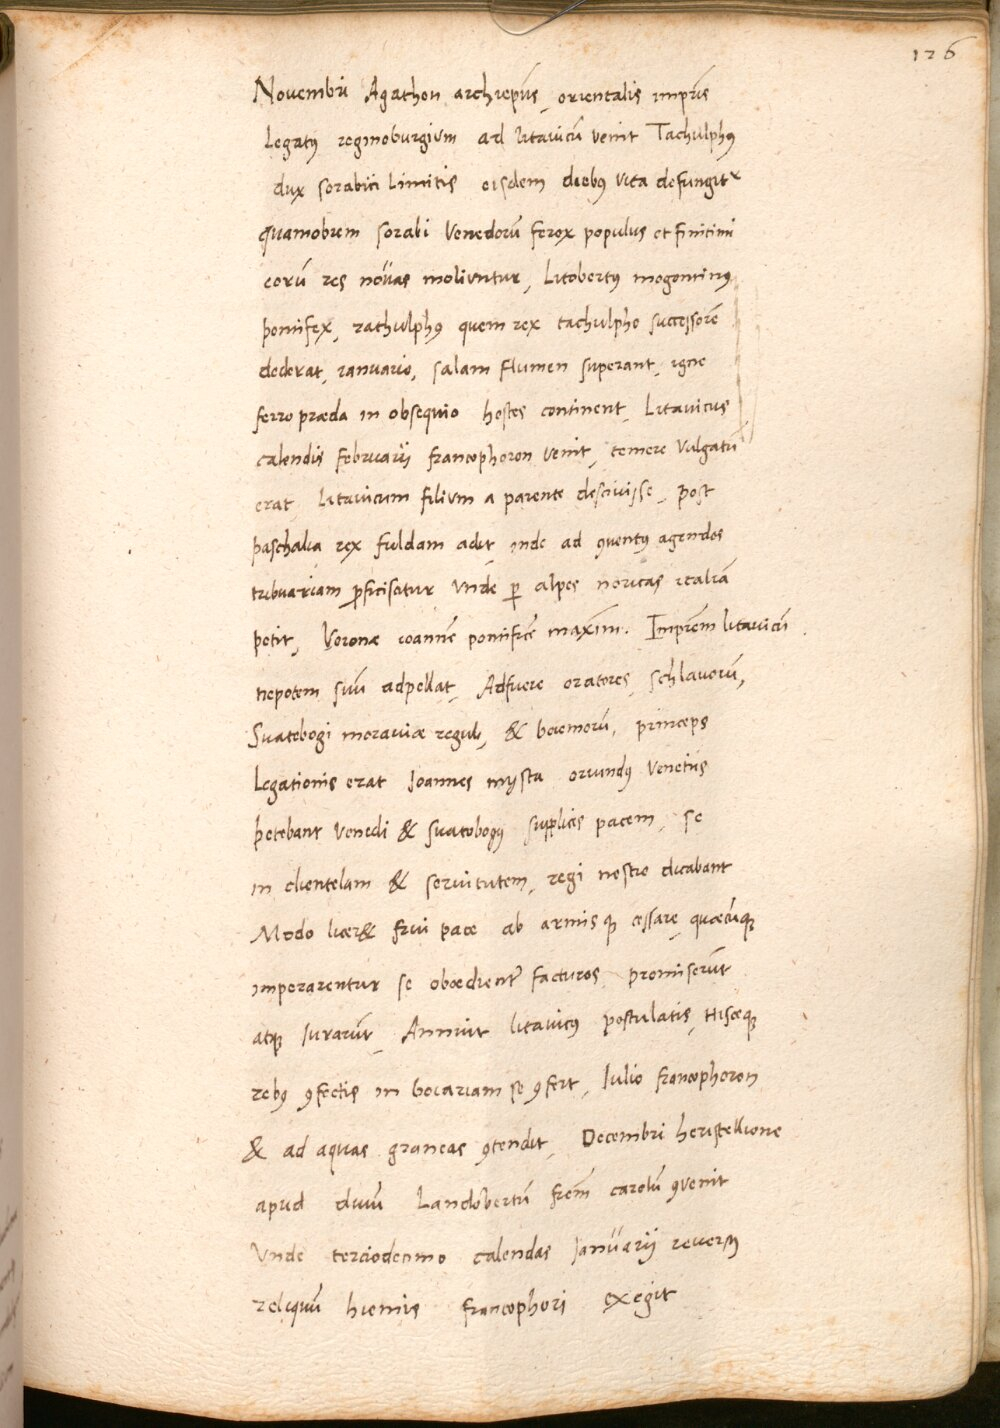 126
Novembri Agathon archiep̃us, orientalis imp̃ris
Legatꝰ reginoburgium ad litavicũ venit Tachulphꝰ
dux sorabici Limitis eisdem diebꝰ vita defungitr
quamobrem sorabi Venedorũ ferox populus et finitimi
eorũ res novas moliuntur, Litobertꝰ mogontinꝰ
pontifex, rathulphꝰ quem rex tachulpho successorẽ
dederat, ianuario, salam flumen superant, igne
ferro præda in obsequio hostes continent, Litavicus
calendis februarii francophoron venit, temere vulgatũ
erat Litavicum filium a parente descivisse, post
paschalia rex fuldam adit inde ad ꝯventꝰ agendos
tribuariam ꝓficiscitur vnde ꝑ alpes noricas italiã
petit, Veronæ ioannẽ pontificẽ maxim. Imp̃rem litavicũ
nepotem suũ adpellat, Adfuere oratores, schlavorũ,
Suatebogi moraviæ reguli, & boiemorũ, princeps
Legationis erat Joannes mysta oriundꝰ Venetiis
petebant Venedi & suatobogꝰ supplices pacem, se
in clientelam & servitutem, regi nostro dicabant
Modo licer& frui pace ab armis qȝ cessare, quæcũqȝ
imperarentur se obœdient̃ facturos promiserũt
atqȝ Jurarũt, Annuit litavicꝰ postulatis, Hisceqȝ
rebꝰ ꝯfectis in boiariam se ꝯfert, Iulio francophoron
& ad aquas graneas ꝯtendit, Decembri heristellione
apud divũ Landobertũ frẽm carolũ ꝯvenit
Vnde terciodecimo calendas Januarii reversꝰ
reliquũ hiemis francophori exegit